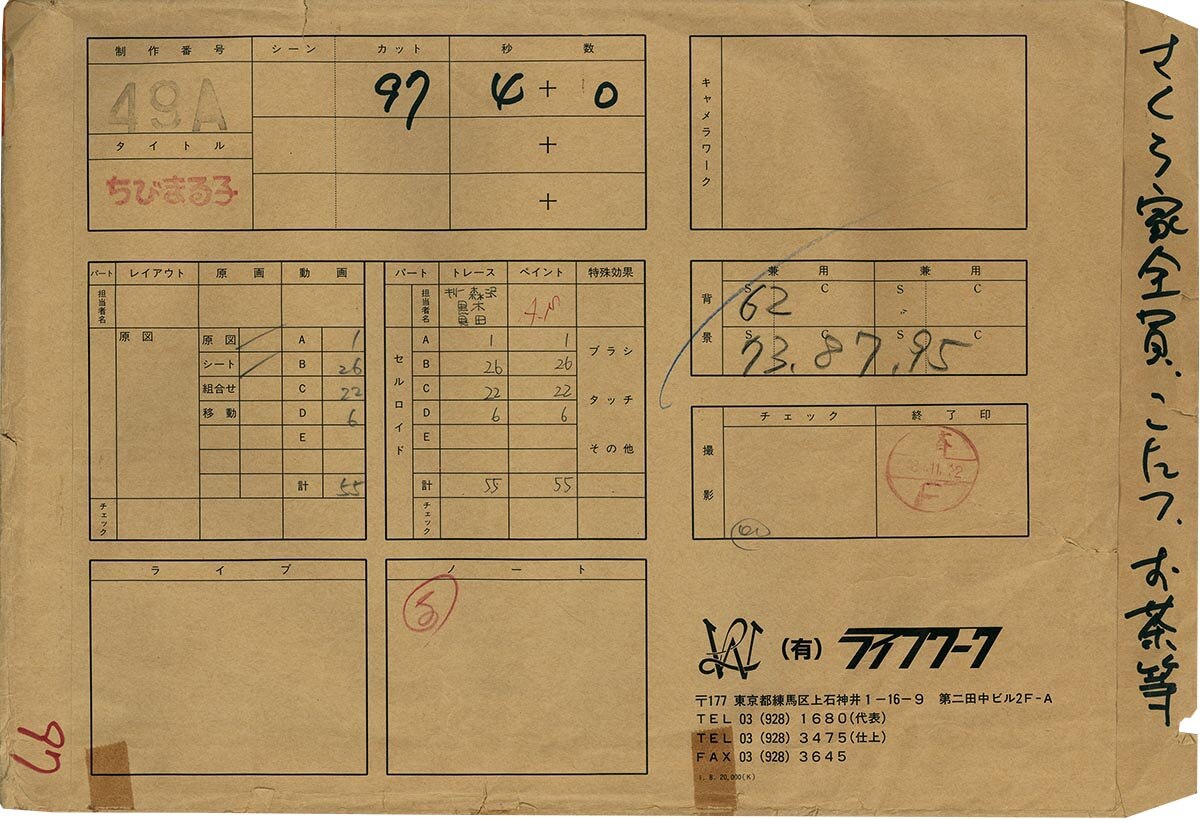 制作番号
49A
タイトル
ちびまる子
シーン カット 秒数
97 4+0
+
+
キャメラワーク
パート レイアウト 原画 動画
担当者名
原図 原図 A 1
シート B 26
組合せ C 22
移動 D 6
E
計 55
チェック
パート トレース ペイント 特殊効果
担当者名
黒木
セルロイド
A 1 1
B 26 26
C 22 22
D 6 6
E
計 55 55
チェック
ブラシ
タッチ
その他
背景
兼用 兼用
S C S C
62
S C S C
73.87,95
撮影
チェック 終了印
F
ライブ
ノート
(有)ライフワーク
〒177 東京都練馬区上石神井1-16-9 第二田中ビル2F-A
TEL 03 (928) 1680(代表)
TEL 03 (928) 3475(仕上)
FAX 03 (928) 3645
1. 8. 20,000(K)
さくら家全員、こたつ、お茶等
97